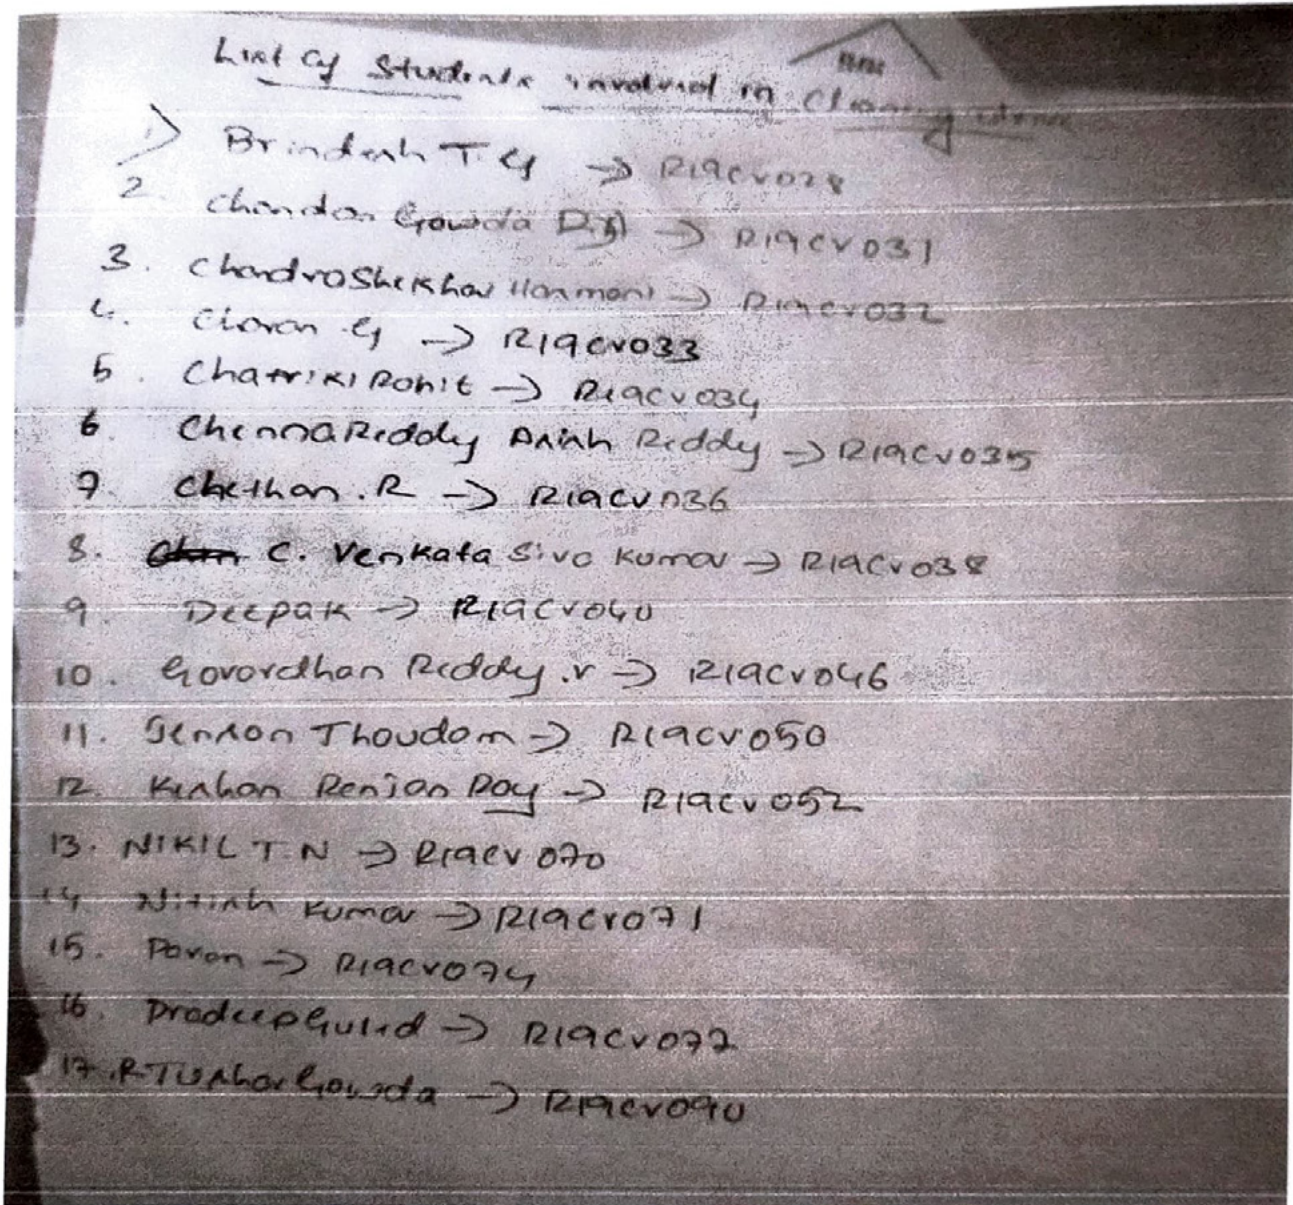 List of Students involved in Cleaning
1) Brindesh T.G → R19CV028
2. Chandan Gowda → R19CV031
3. ChandraShekhar Harmani → R19CV032
4. Charan .G → R19CV033
5. Chatriki Rohit → R19CV034
6 ChennaReddy Anish Reddy → R19CV035
7. Chethan .R → R19CV036
8. C. Venkata Siva Kumar → R19CV038
9. Deepak → R19CV040
10. Govardhan Reddy .V → R19CV046
11. Jenson Thoudam → R19CV050
12. Kishan Renjan Roy → R19CV052
13. NIKIL T.N → R19CV070
14. Nitish Kumar → R19CV071
15. Pavan → R19CV074
16. Pradeep Guled → R19CV077
17. R Tushar Gowda → R19CV090